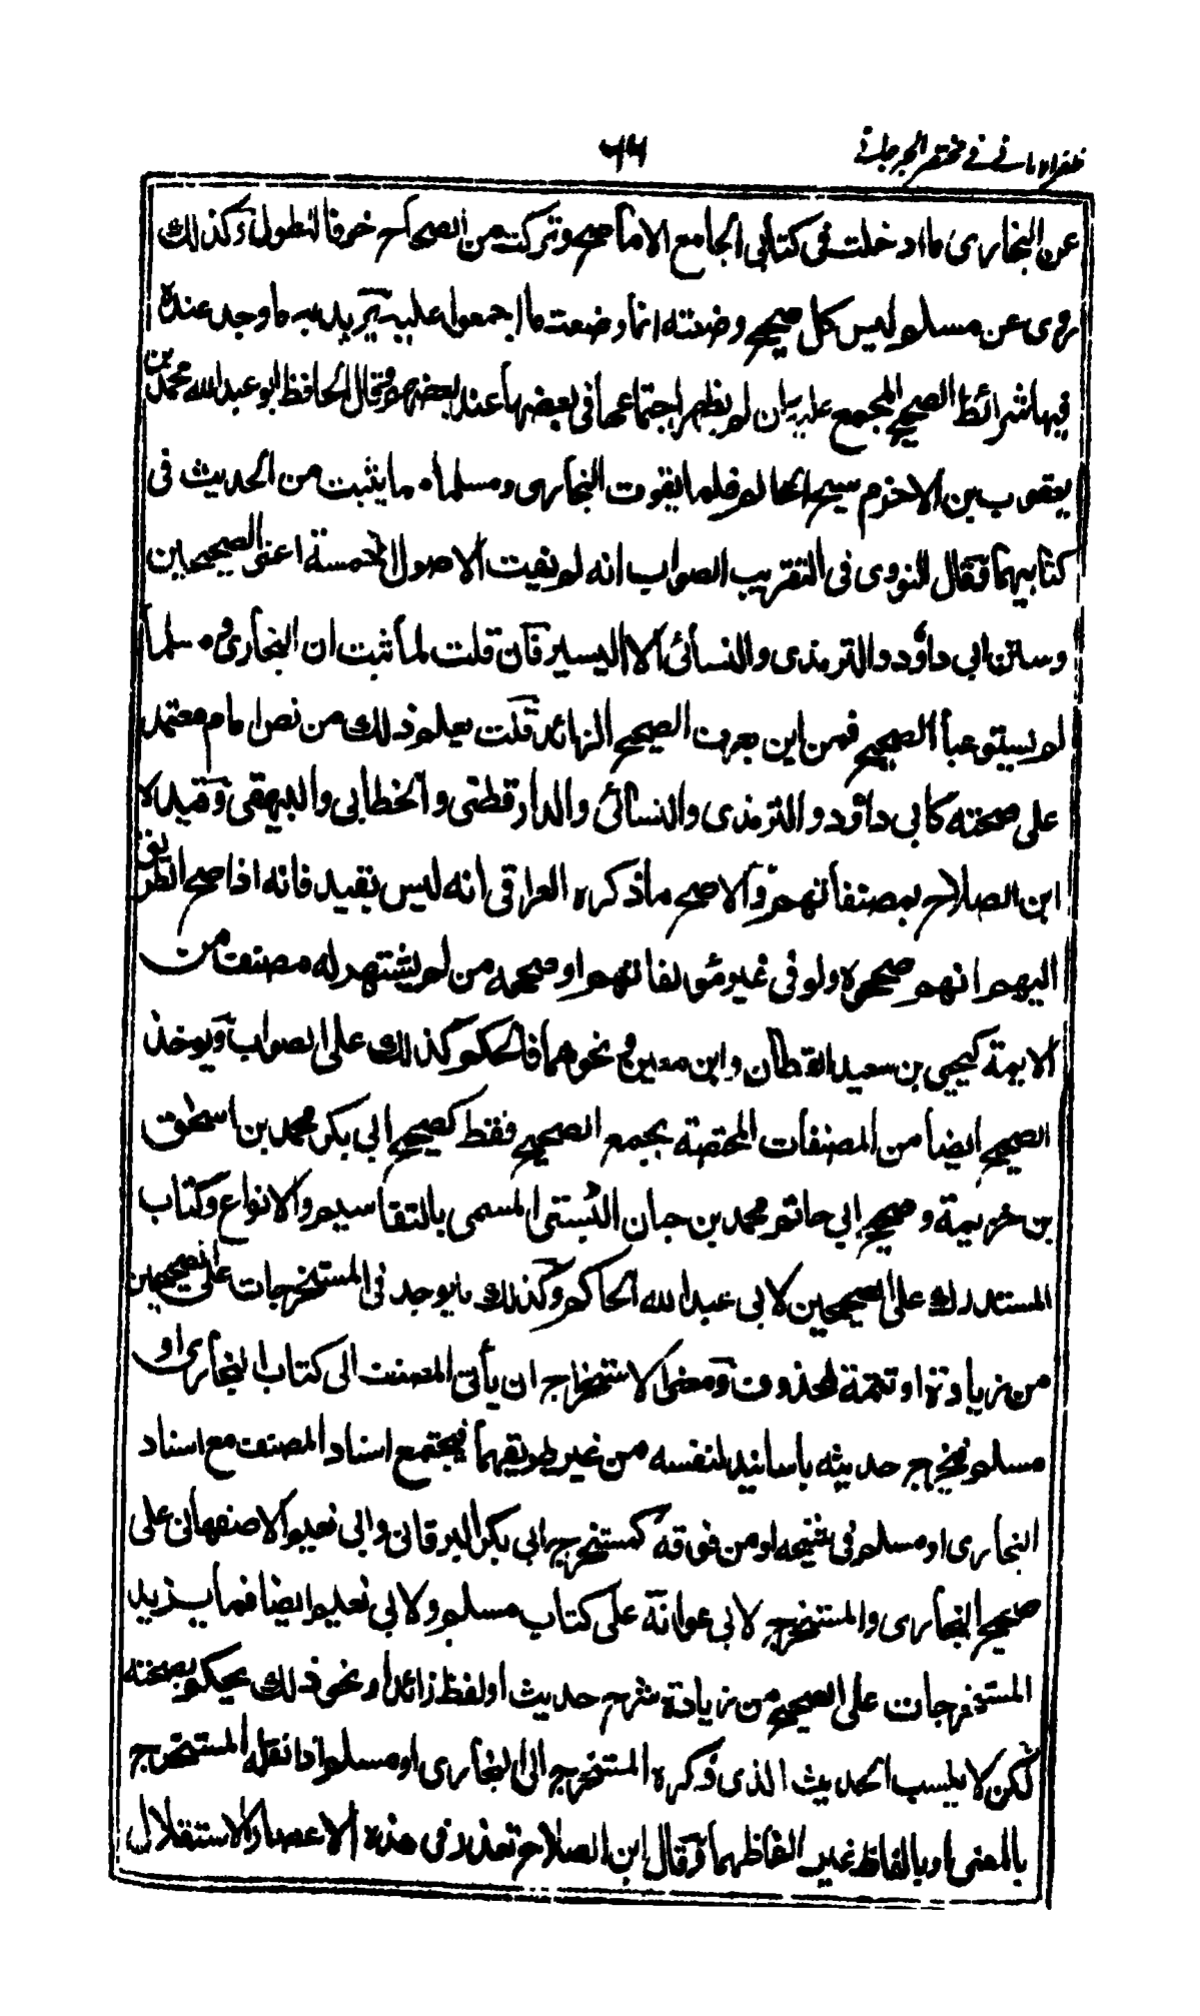 ظفر الامانی فی مختصر الجرجانی
عن البخاری ما ادخلت فی کتابی الجامع الا ما صح وترکت من الصحاح خوفا لتطول وکذلك
روی عن مسلم لیس کل صحیح وضعته انما وضعت ما اجمعوا علیه یرید به ما وجد عنده
فیها شرائط الصحیح المجمع علیه وان لم یظهر اجتماعها فی بعضها عند بعضهم وقال الحافظ ابو عبد الله محمد بن
یعقوب بن الاخرم شیخ الحاکم قلما یفوت البخاری ومسلما ما یثبت من الحدیث فی
کتابیهما وقال النووی فی التقریب الصواب انه لم یفت الاصول الخمسة اعنی الصحیحین
وسنن ابی داؤد والترمذی والنسائی الا الیسیر فان قلت لما ثبت ان البخاری ومسلما
لم یستوعبا الصحیح فمن این یعرف الصحیح الزائد قلت یعلم ذلك من نص امام معتمد
علی صحته کابی داؤد والترمذی والنسائی والدارقطنی والخطابی والبیهقی وقیده
ابن الصلاح بمصنفاتهم والاصح ما ذکره العراقی انه لیس بقید فانه اذا صح الطریق
الیهم انهم صححوه ولو فی غیر مؤلفاتهم او صححه من لم یشتهر له مصنف من
الایمة کیحیی بن سعید القطان وابن معین ونحوهما فالحکم کذلك علی الصواب ویوخذ
الصحیح ایضا من المصنفات المختصة بجمع الصحیح فقط کصحیح ابی بکر محمد بن اسحق
بن خزیمة وصحیح ابی حاتم محمد بن حبان البستی المسمی بالتقاسیم والانواع وکتاب
المستدرك علی الصحیحین لابی عبد الله الحاکم وکذلك ما یوجد فی المستخرجات علی الصحیحین
من زیادة او تتمة لمحذوف ومعنی الاستخراج ان یأتی المصنف الی کتاب البخاری او
مسلم فیخرج حدیثه بأسانید لنفسه من غیر طریقهما فیجتمع اسناد المصنف مع اسناد
البخاری او مسلم فی شیخه او من فوقه کمستخرج ابی بکر البرقانی وابی نعیم الاصفهانی علی
صحیح البخاری والمستخرج لابی عوانة علی کتاب مسلم ولابی نعیم ایضا فما یزید
المستخرجات علی الصحیح من زیادة شرح حدیث او لفظ زائد او نحو ذلك یحکم بصحته
لکن لا ینسب الحدیث الذی ذکره المستخرج الی البخاری او مسلم اذا نقله المستخرج
بالمعنی او بالفاظ غیر الفاظهما وقال ابن الصلاح تعذر فی هذه الاعصار الاستقلال